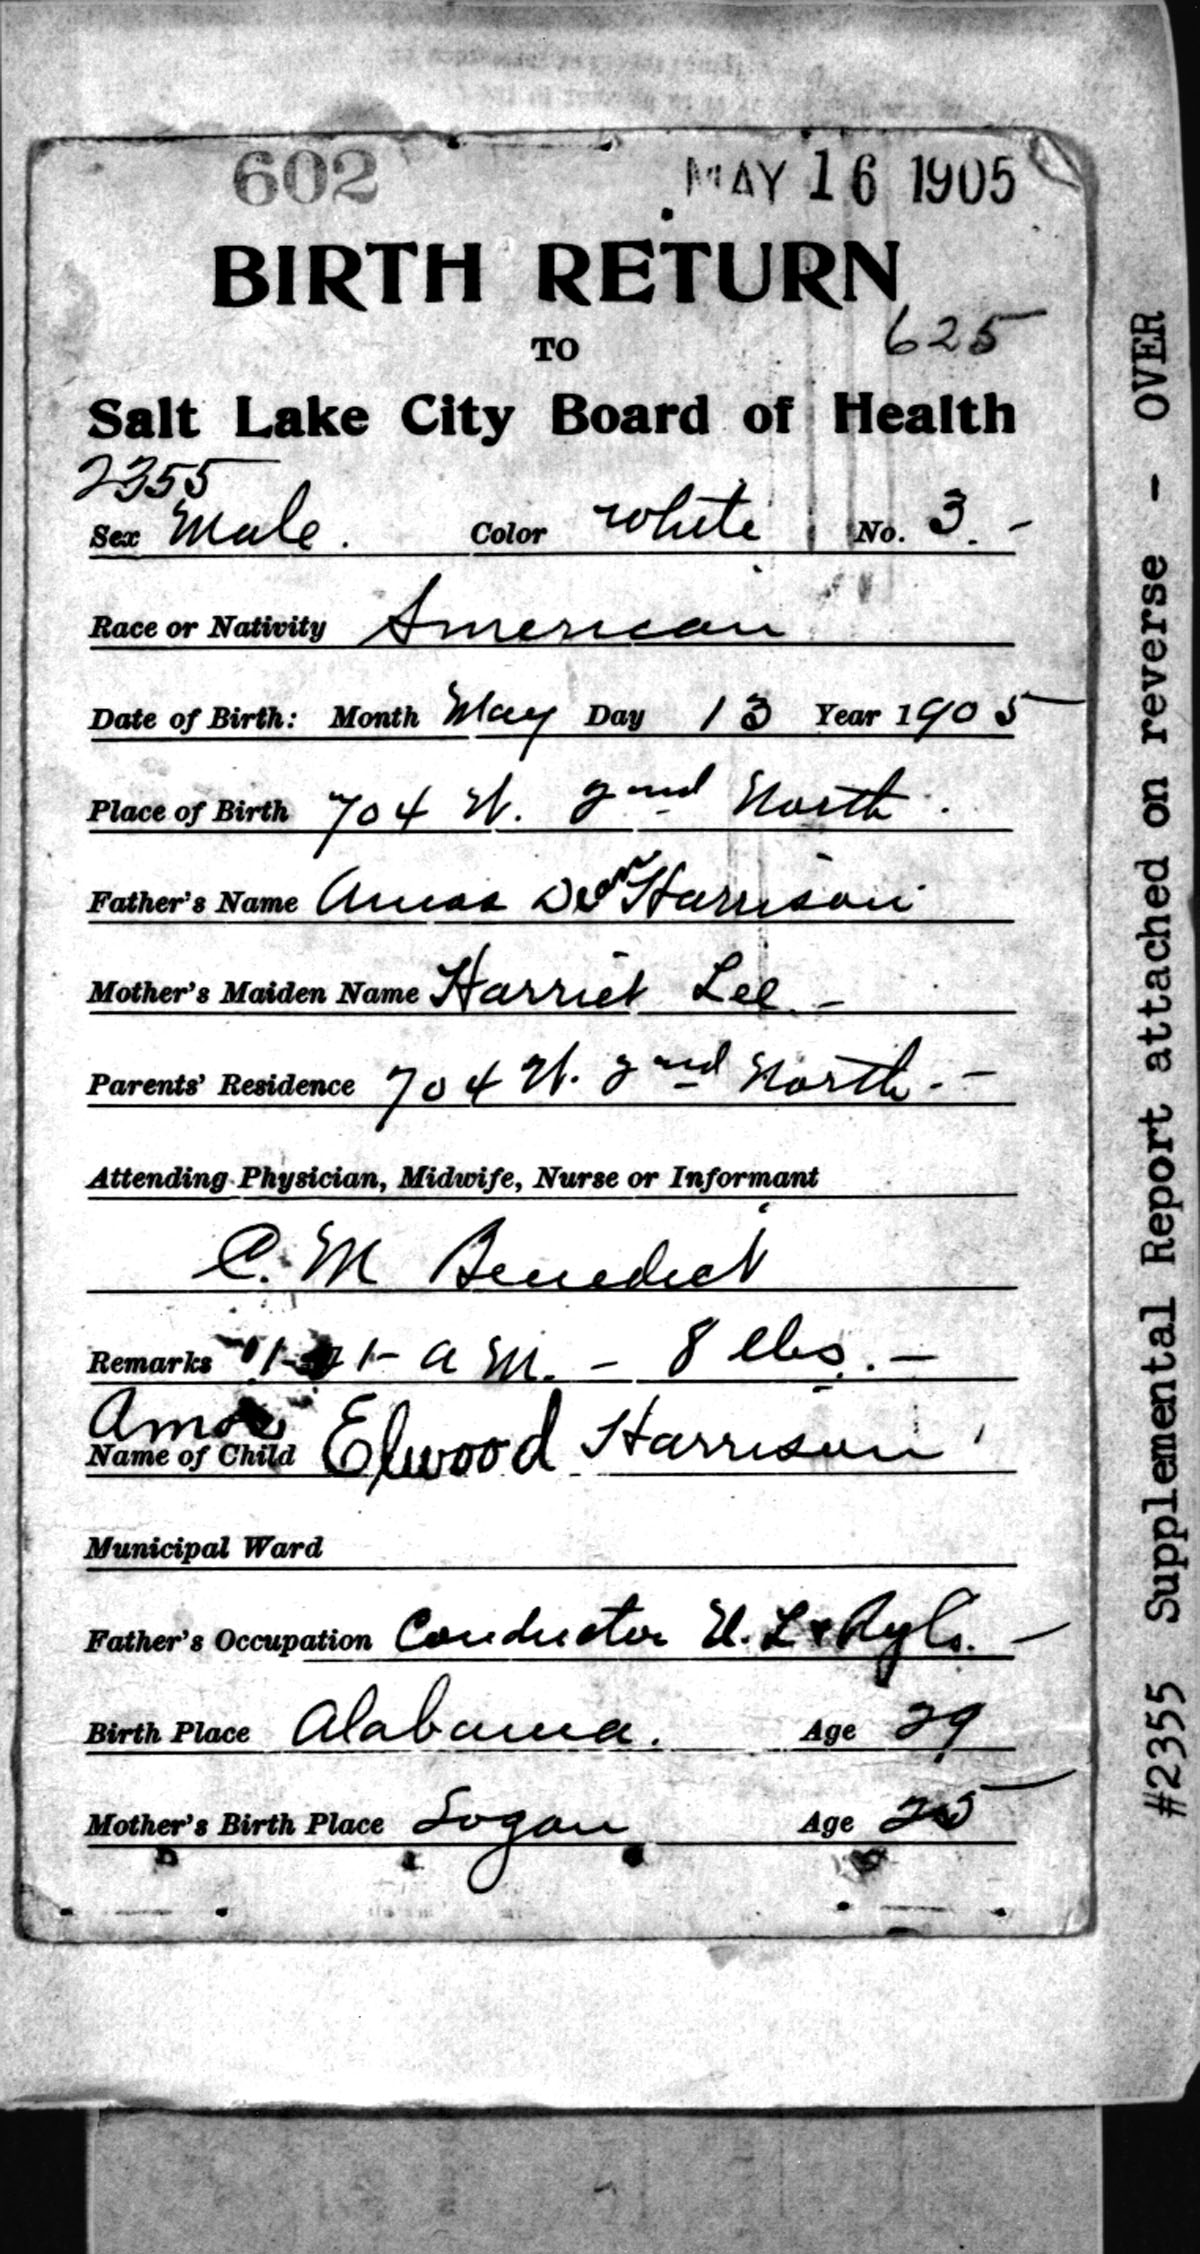 602 MAY 16 1905
BIRTH RETURN
625
TO
Salt Lake City Board of Health
2355
Sex Male. Color White No. 3. -
Race or Nativity American
Date of Birth: Month May Day 13 Year 1905
Place of Birth 704 W. 2nd North.
Father's Name Amos Dean Harrison
Mother's Maiden Name Harriet Lee -
Parents' Residence 704 W. 2nd North. -
Attending Physician, Midwife, Nurse or Informant
C. M Benedict
Remarks A M. - 8 lbs. -
Amos
Name of Child Elwood Harrison
Municipal Ward
Father's Occupation Conductor U. L & Ry Co. -
Birth Place Alabama. Age 29
Mother's Birth Place Logan Age 25
#2355 Supplemental Report attached on reverse - OVER